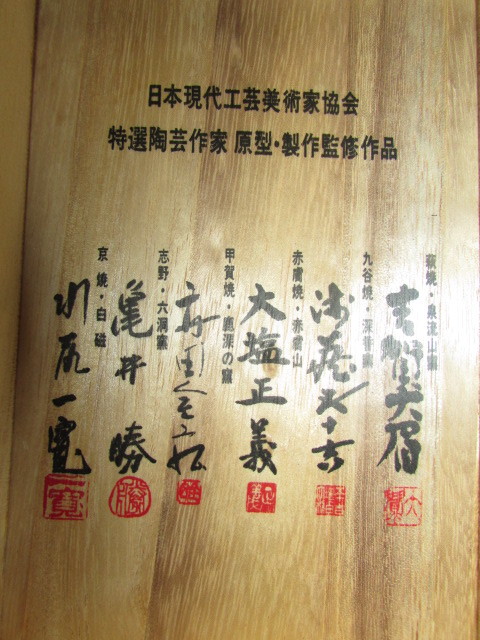 日本現代工芸美術家協会
特選陶芸作家 原型・製作監修作品
萩焼・泉流山窯
吉賀大眉
九谷焼・深香窯
浅蔵五十吉
赤膚焼・赤雲山
大塩正義
甲賀焼・鹿深の窯
志野・六洞窯
亀井勝
京焼・白磁